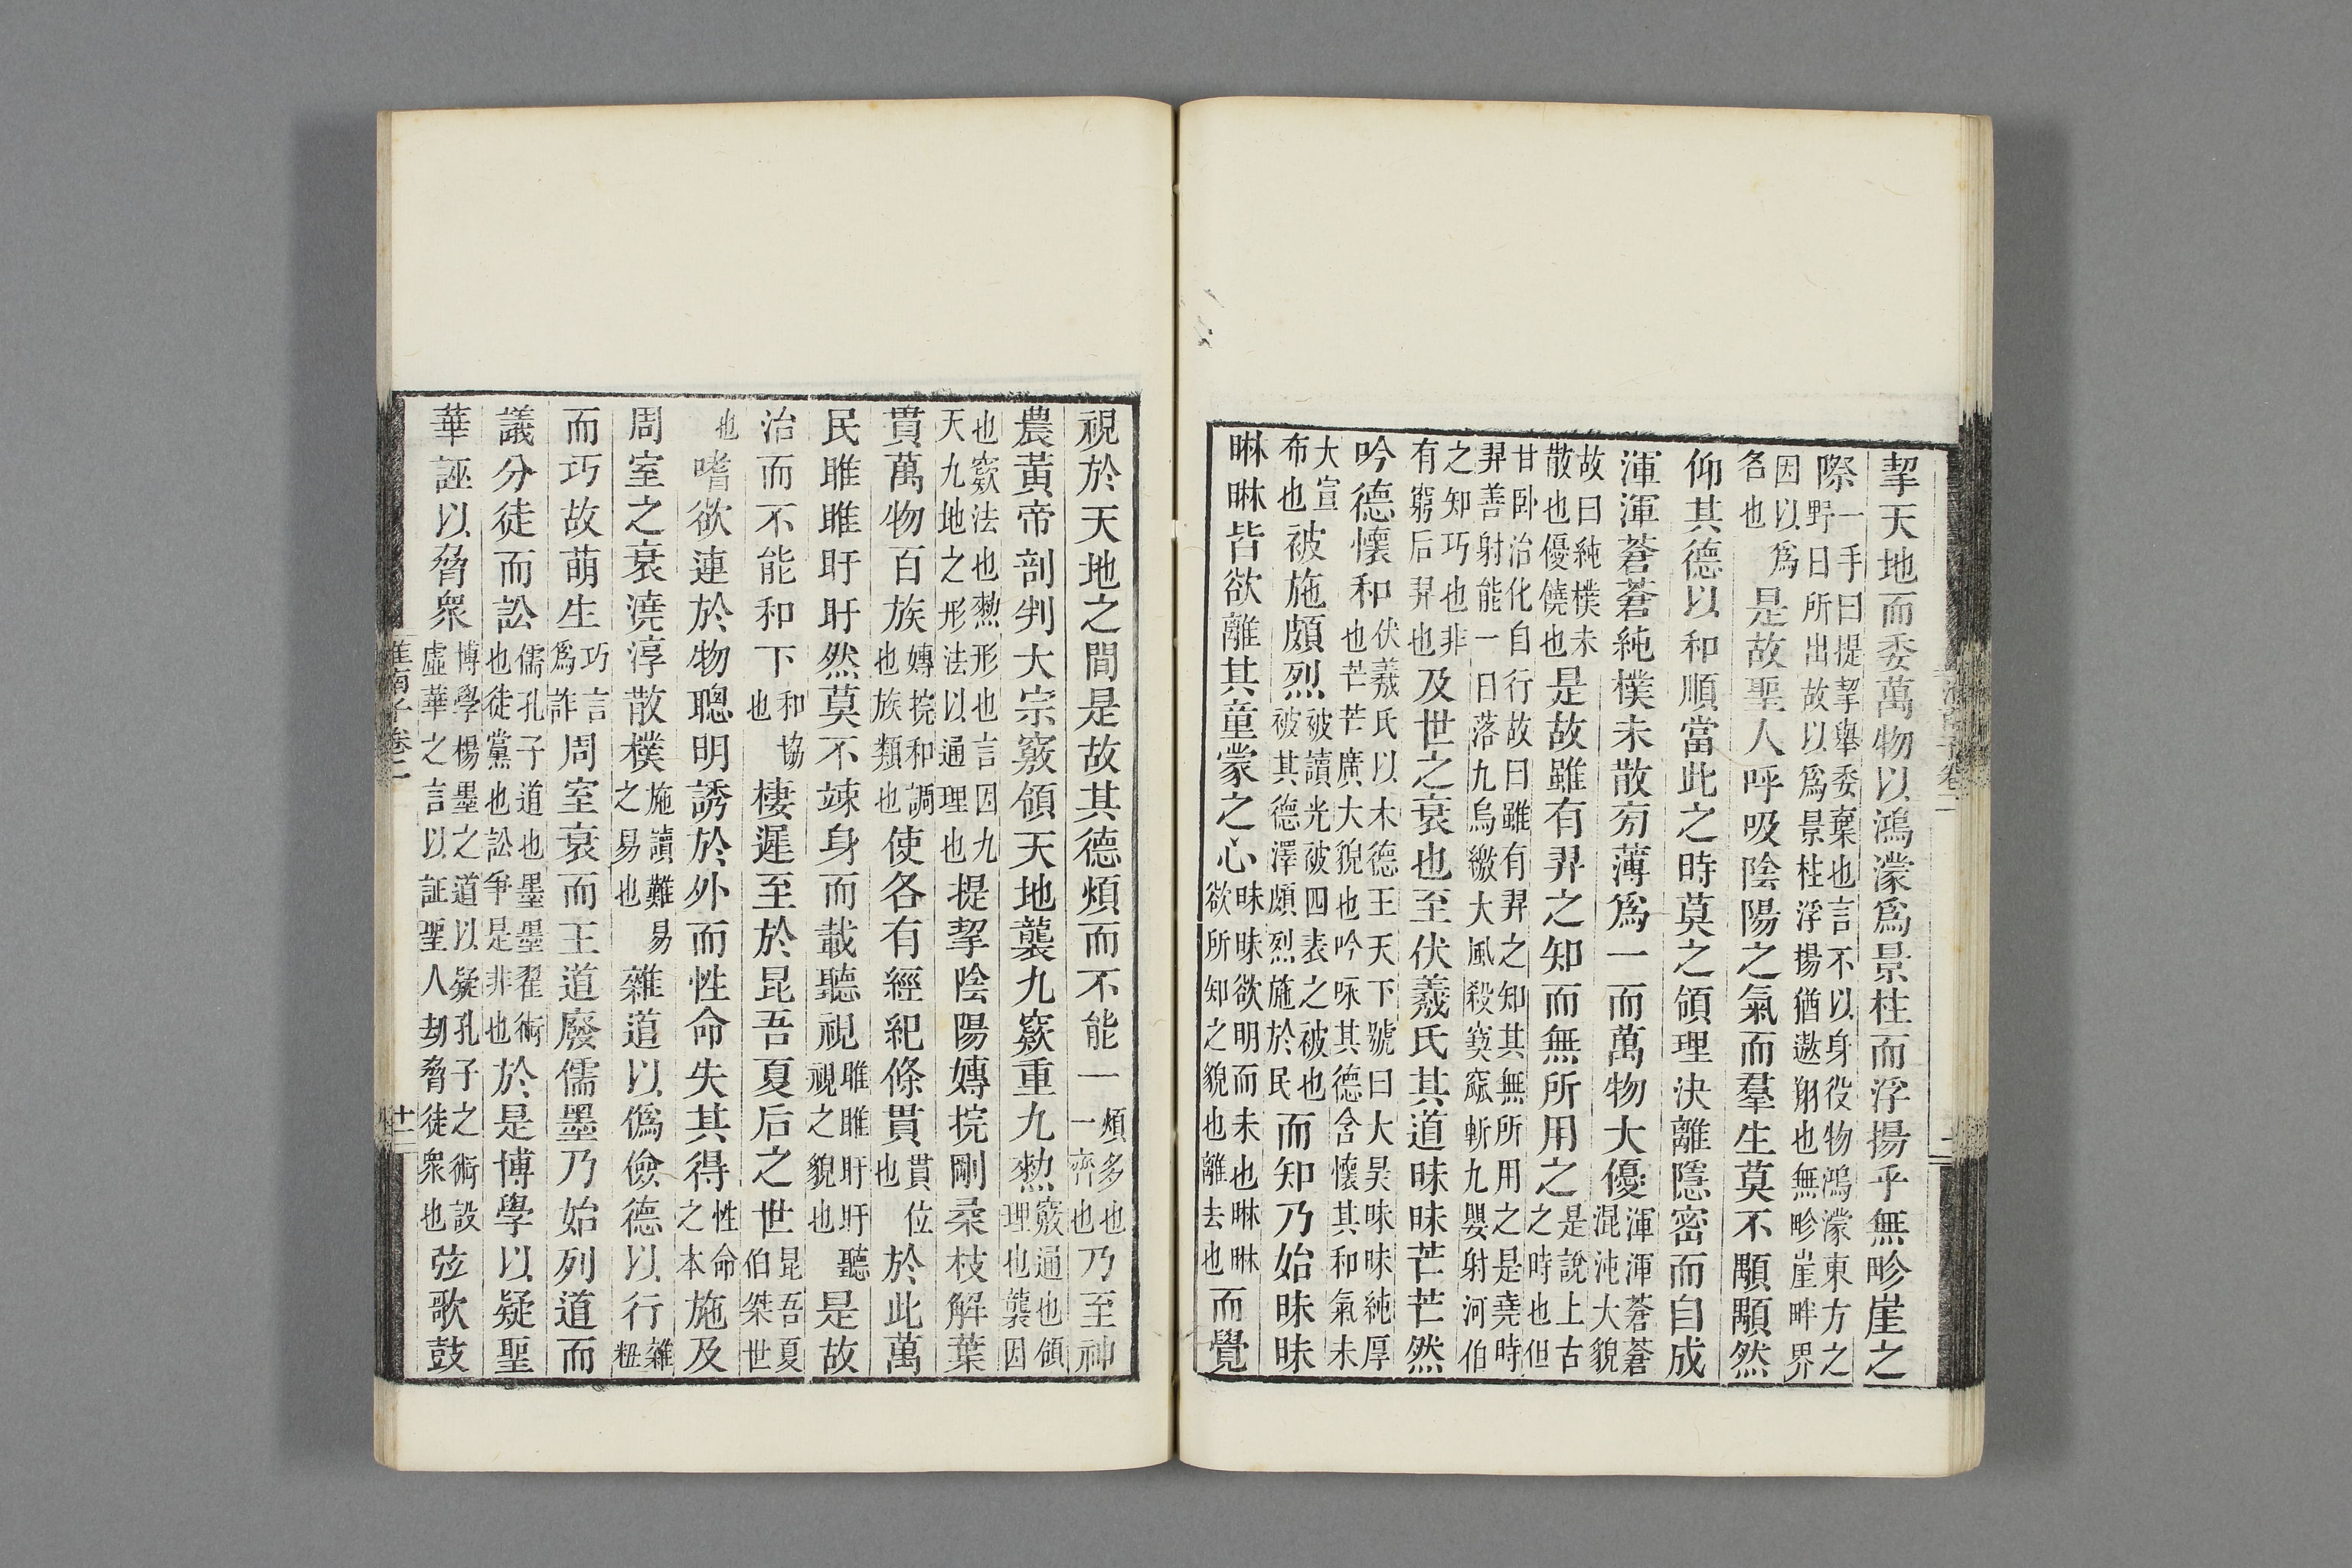 挈天地而委萬物以鴻濛爲景柱而浮揚乎無畛崖之
際一手曰提挈舉委棄也言不以身役物鴻濛東方之野日所出故以爲景柱浮揚猶遨翔也無畛崖畔界
因以爲各也是故聖人呼吸陰陽之氣而羣生莫不顒顒然
仰其德以和順當此之時莫之領理決離隱密而自成
渾渾蒼蒼純樸未散旁薄爲一而萬物大優渾渾蒼蒼混沌大貌
故曰純樸未散也優饒也是故雖有羿之知而無所用之是說上古之時也但
甘卧治化自行故曰雖有羿之知其無所用之是堯時羿善射能一日落九烏繳大風殺窫窳斬九嬰射河伯
之知巧也非有窮后羿也及世之衰也至伏羲氏其道昧昧芒芒然
吟德懷和伏羲氏以木德王天下號曰大昊昧昧純厚也芒芒廣大貌也吟咏其德含懷其和氣未
大宣布也被施頗烈被讀光被四表之被也被其德澤頗烈施於民而知乃始昧昧
晽晽皆欲離其童蒙之心昧昧欲明而未也晽晽欲所知之貌也離去也而覺
視於天地之間是故其德煩而不能一煩多也一齊也乃至神
農黃帝剖判大宗竅領天地襲九窾重九㙯竅通也領理也襲因
也窾法也㙯形也言因九天九地之形法以通理也提挈陰陽嫥捖剛柔枝解葉
貫萬物百族嫥捖和調也族類也使各有經紀條貫貫位也於此萬
民睢睢盱盱然莫不竦身而載聽視睢睢盱盱聽視之貌也是故
治而不能和下和協也棲遲至於昆吾夏后之世昆吾夏伯桀世
也嗜欲連於物聰明誘於外而性命失其得性命之本施及
周室之衰澆淳散樸施讀難易之易也雜道以僞儉德以行雜粈
而巧故萌生巧言爲詐周室衰而王道廢儒墨乃始列道而
議分徒而訟儒孔子道也墨墨翟術也徒黨也訟爭是非也於是博學以疑聖
華誣以脅衆博學楊墨之道以疑孔子之術設虛華之言以証聖人劫脅徒衆也弦歌鼓
淮南子卷二
十一